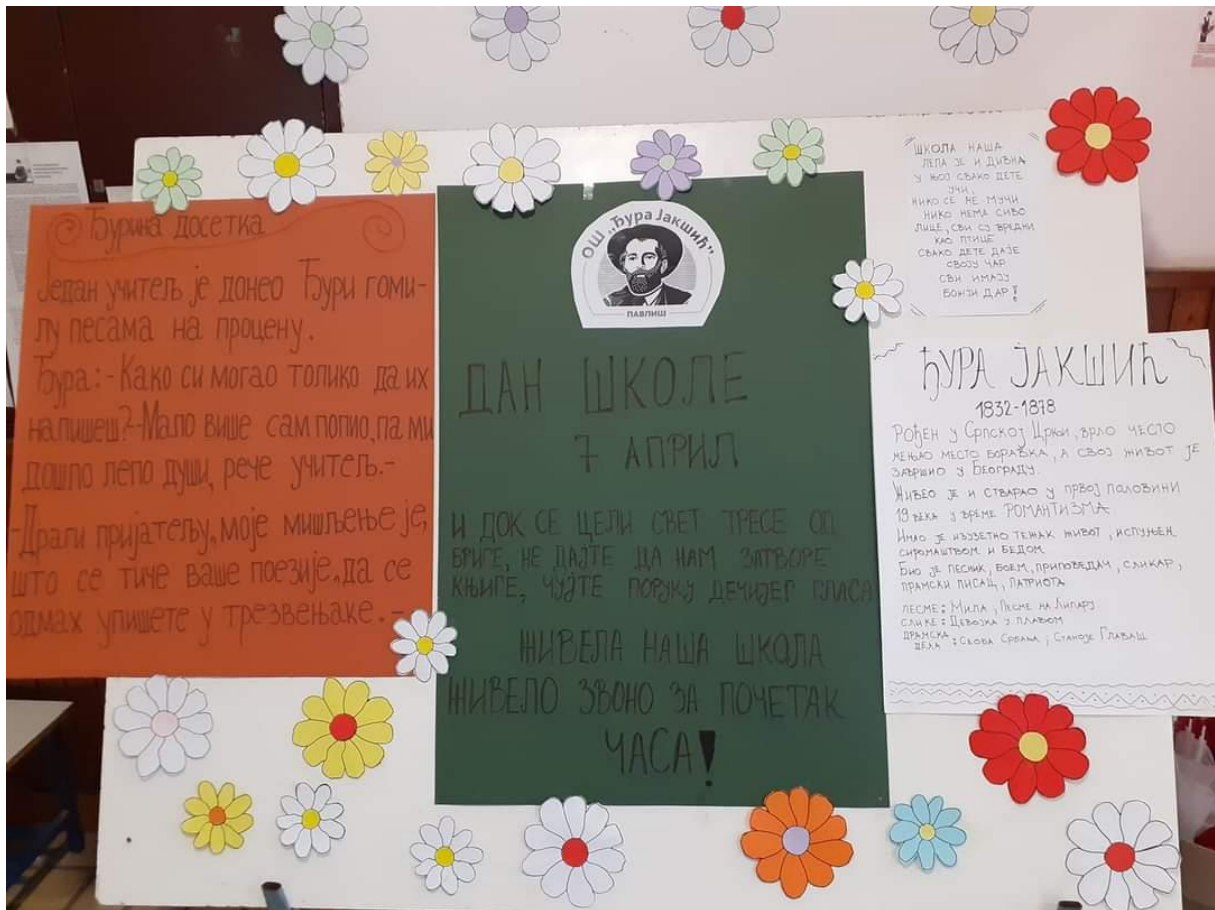 Ђурина досетка
Један учитељ је донео Ђури гоми-
лу песама на процену.
Ђура:-Како си могао толико да их
напишеш?-Мало више сам попио, па ми
дошло лепо души, рече учитељ.-
-Драги пријатељу, моје мишљење је,
што се тиче ваше поезије, да се
одмах упишете у трезвењаке.-
ОШ „Ђура Јакшић”
ПАВЛИШ
ДАН ШКОЛЕ
7 АПРИЛ
И ДОК СЕ ЦЕЛИ СВЕТ ТРЕСЕ ОД
БРИГЕ, НЕ ДАЈТЕ ДА НАМ ЗАТВОРЕ
КЊИГЕ, ЧУЈТЕ ПОРУКУ ДЕЧИЈЕГ ГЛАСА
ЖИВЕЛА НАША ШКОЛА
ЖИВЕЛО ЗВОНО ЗА ПОЧЕТАК
ЧАСА!
ШКОЛА НАША
ЛЕПА ЈЕ И ДИВНА
У ЊОЈ СВАКО ДЕТЕ
УЧИ.
НИКО СЕ НЕ МУЧИ
НИКО НЕМА СИВО
ЛИЦЕ, СВИ СУ ВРЕДНИ
КАО ПТИЦЕ
СВАКО ДЕТЕ ДАЈЕ
СВОЈУ ЧАР
СВИ ИМАЈУ
БОЖЈИ ДАР!
ЂУРА ЈАКШИЋ
1832-1878
РОЂЕН У СРПСКОЈ ЦРЊИ, ВРЛО ЧЕСТО
МЕЊАО МЕСТО БОРАВКА, А СВОЈ ЖИВОТ ЈЕ
ЗАВРШИО У БЕОГРАДУ.
ЖИВЕО ЈЕ И СТВАРАО У ПРВОЈ ПОЛОВИНИ
19 ВЕКА У ВРЕМЕ РОМАНТИЗМА
ИМАО ЈЕ ИЗУЗЕТНО ТЕЖАК ЖИВОТ, ИСПУЊЕН
СИРОМАШТВОМ И БЕДОМ
БИО ЈЕ ПЕСНИК, БОЕМ, ПРИПОВЕДАЧ, СЛИКАР,
ДРАМСКИ ПИСАЦ, ПАТРИОТА
ПЕСМЕ: МИЛА, ПЕСМЕ НА ЛИПАРУ
СЛИКЕ: ДЕВОЈКА У ПЛАВОМ
ДРАМСКА
ДЕЛА: СЕОБА СРБАЉА, СТАНОЈЕ ГЛАВАШ